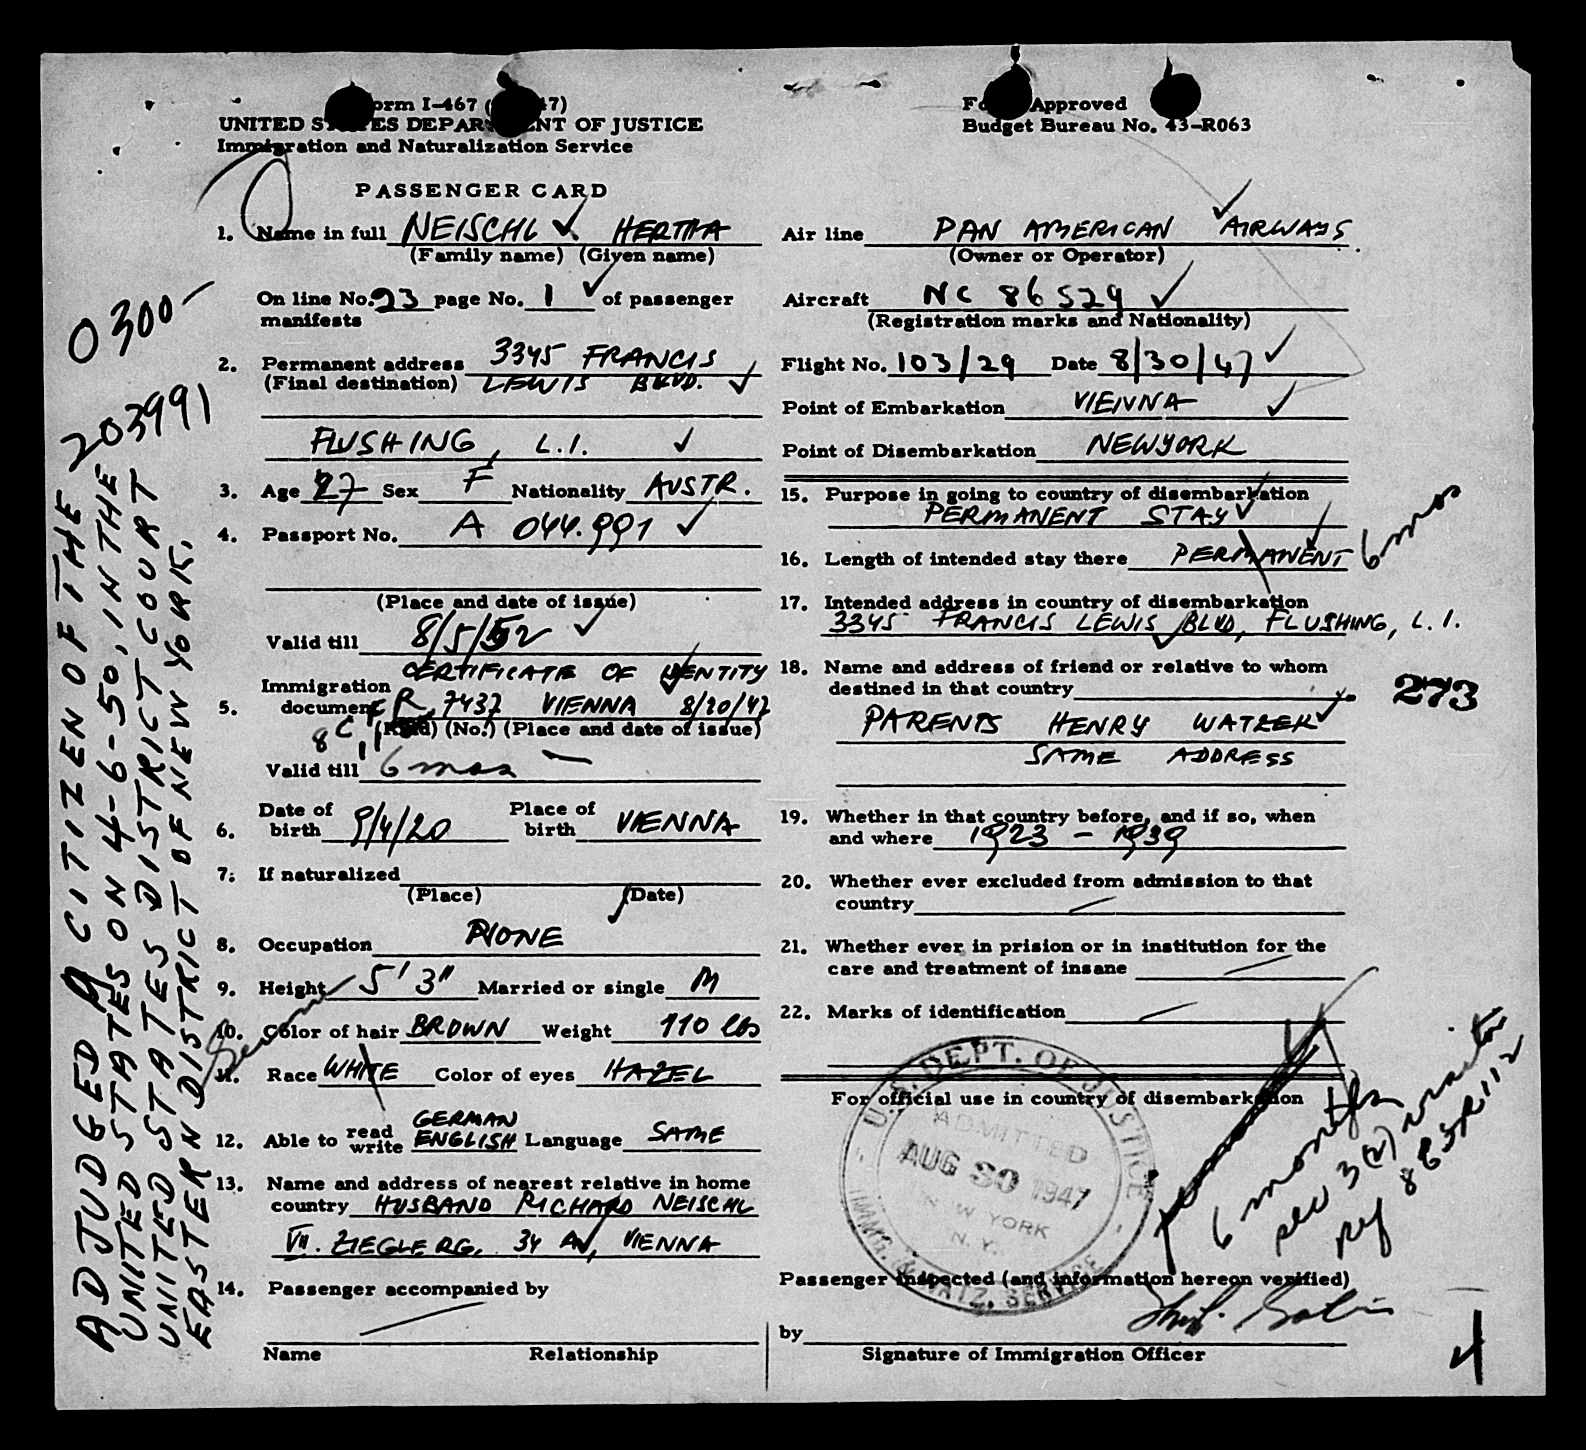 Form I-467 ( 47)
UNITED STATES DEPARTMENT OF JUSTICE
Immigration and Naturalization Service
Form Approved
Budget Bureau No. 43-R063
PASSENGER CARD
1. Name in full NEISCHL HERTHA
(Family name) (Given name)
On line No. 23 page No. 1 of passenger
manifests
2. Permanent address 3345 FRANCIS
(Final destination) LEWIS BLVD.
FLUSHING, L.I.
3. Age 27 Sex F Nationality AUSTR.
4. Passport No. A 044.991
(Place and date of issue)
Valid till 8/5/52
CERTIFICATE OF IDENTITY
Immigration
5. document R 7437 VIENNA 8/20/47
(Kind) (No.) (Place and date of issue)
Valid till 6 mos
6. Date of birth 9/4/20 Place of birth VIENNA
7. If naturalized
(Place) (Date)
8. Occupation NONE
9. Height 5' 3" Married or single M
10. Color of hair BROWN Weight 110 lbs
11. Race WHITE Color of eyes HAZEL
12. Able to read write GERMAN ENGLISH Language SAME
13. Name and address of nearest relative in home
country HUSBAND RICHARD NEISCHL
VII. ZIEGLERG. 34 A, VIENNA
14. Passenger accompanied by
Name Relationship
Air line PAN AMERICAN AIRWAYS.
(Owner or Operator)
Aircraft NC 86529
(Registration marks and Nationality)
Flight No. 103/29 Date 8/30/47
Point of Embarkation VIENNA
Point of Disembarkation NEWYORK
15. Purpose in going to country of disembarkation
PERMANENT STAY
16. Length of intended stay there PERMANENT 6 mos
17. Intended address in country of disembarkation
3345 FRANCIS LEWIS BLVD, FLUSHING, L.I.
18. Name and address of friend or relative to whom
destined in that country
PARENTS HENRY WATZEK
SAME ADDRESS
273
19. Whether in that country before, and if so, when
and where 1923 - 1939
20. Whether ever excluded from admission to that
country
21. Whether ever in prision or in institution for the
care and treatment of insane
22. Marks of identification
For official use in country of disembarkation
U.S. DEPT. OF JUSTICE
ADMITTED
AUG 30 1947
NEW YORK
N. Y.
IMMIG. & NATZ. SERVICE
6 months
sec 3(2) visitor
Passenger inspected (and information hereon verified)
by
Signature of Immigration Officer
4
0300-
203991
ADJUDGED A CITIZEN OF THE
UNITED STATES ON 4-6-50, IN THE
UNITED STATES DISTRICT COURT
EASTERN DISTRICT OF NEW YORK.